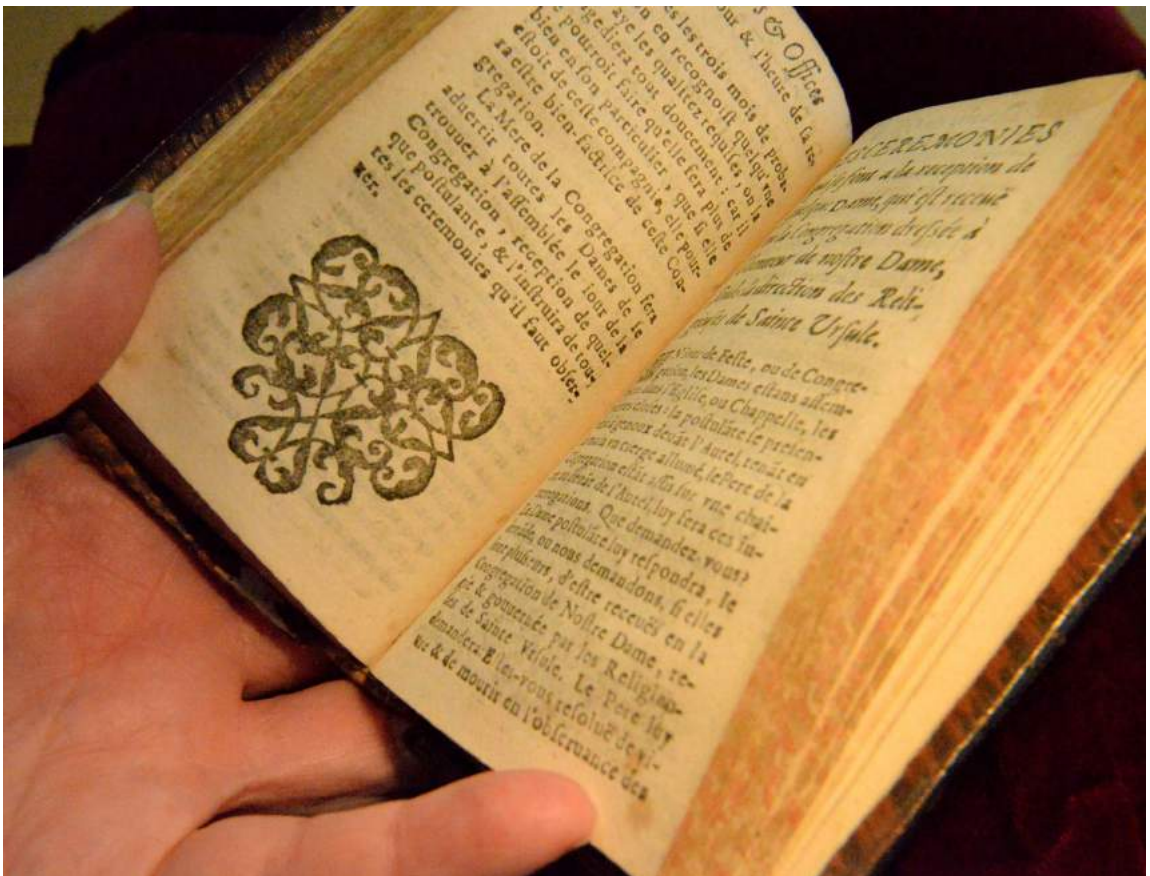 & Offices
les trois mois de proba
on en recognoist quelqu'vne
aye les qualitez requises, on la
gediera tout doucement, car il
pourroit faire qu'elle sera plus de
bien en son particulier, que si elle
estoit de ceste compagnie, elle pour-
ra estre bien-factrice de ceste Con-
gregation.
La Mere de la Congregation fera
aduertir toutes les Dames de la
Congregation, reception de quel-
trouuer à l'assemblée le iour de la
que postulante, & l'instruira de tou-
tes les ceremonies qu'il faut obser-
uer.
CEREMONIES
a la reception de
Dame, qui est receuë
la Congregation dressée à
de nostre Dame,
la direction des Reli-
de Sainte Vrsule.
iour de Feste, ou de Congre-
les Dames estans assem-
l'Eglise, ou Chappelle, les
la postulāte se presen-
genoux deuāt l'Autel, tenāt en
vn cierge allumé, le Pere de la
assis sur vne chai-
de l'Autel, luy fera ces in-
Que demandez-vous?
postulāte luy respondra, ie
ou nous demandons, si elles
plusieurs, d'estre receuës en la
Congregation de Nostre Dame, re-
& gouuernée par les Religieu-
de Sainte Vrsule. Le Pere luy
demandera: Estes-vous resoluë de vi-
& de mourir en l'obseruance des